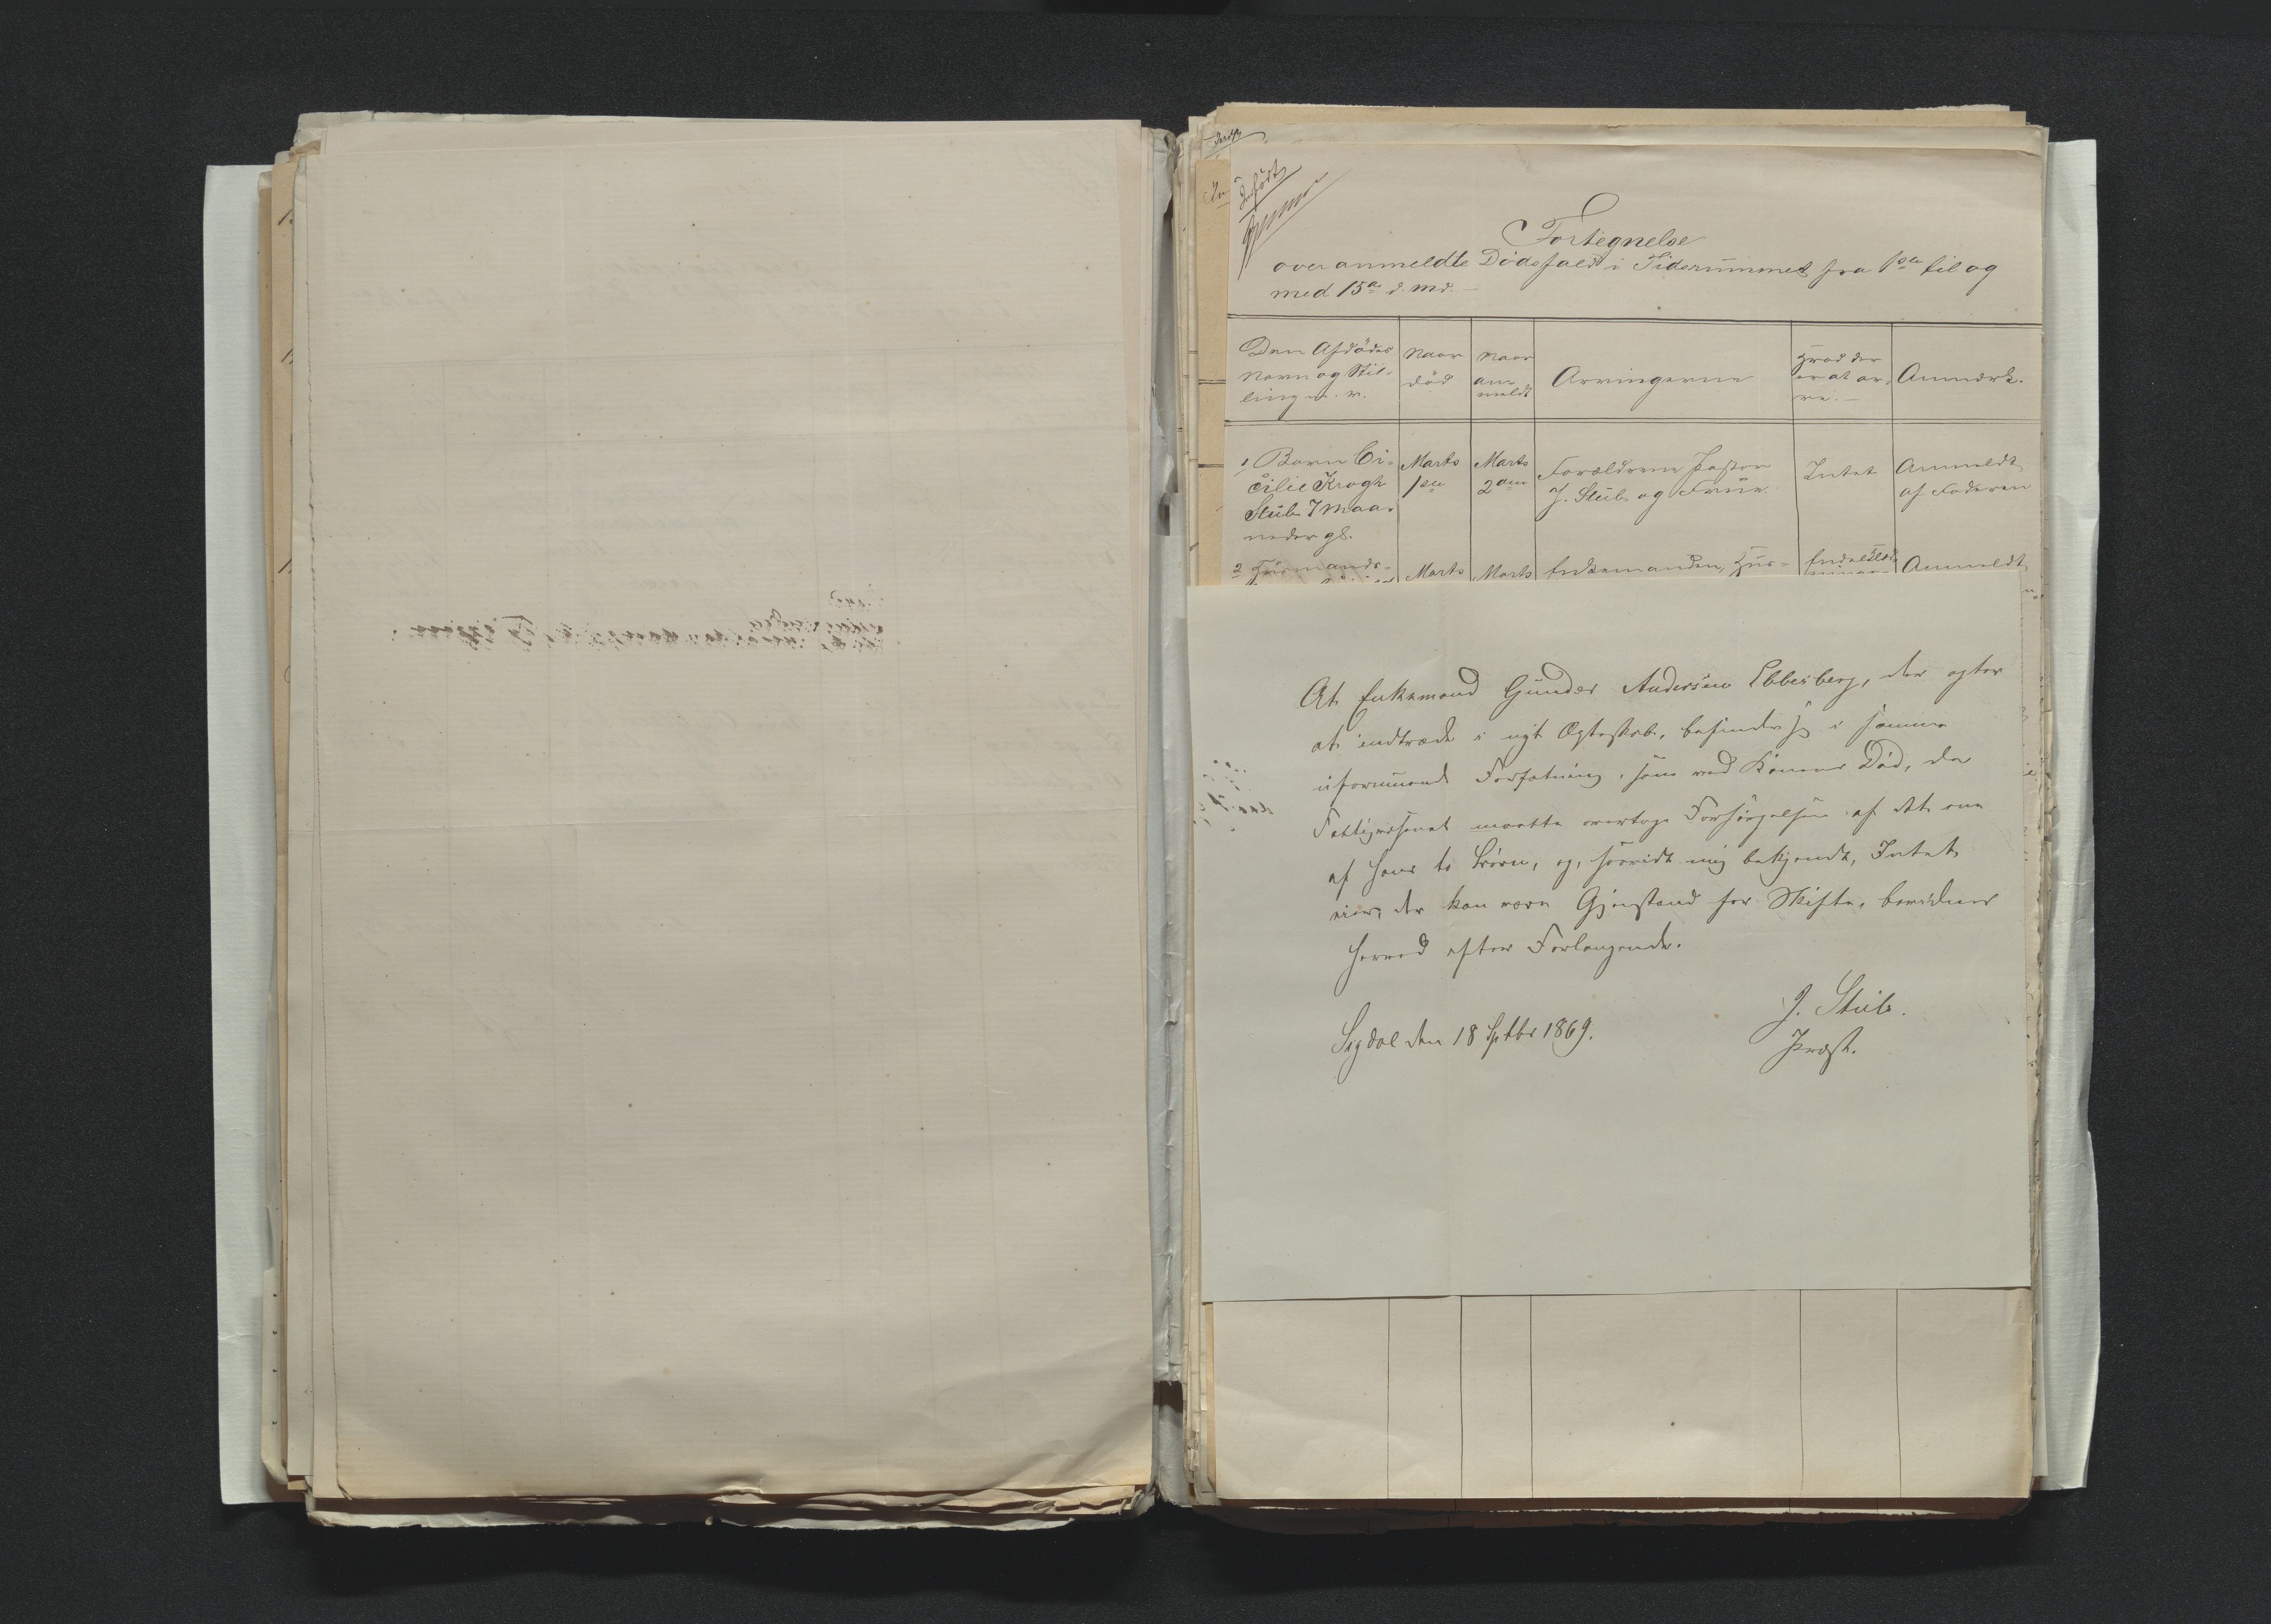 Indført
Fortegnelse
over anmeldte Dødsfald i Tidsrummet fra 1ste til og
med 15de d. Md.
Den Afdødes
Navn og Stil-
ling m. v.
Naar
død
Naar
an-
meldt
Arvingerne
Hvad der
er at ar-
ve.
Anmærk.
1, Barn Ci-
cilie Krogh
Stub 7 maa-
neder gl.
Marts
1ste
Marts
2den
Forældrene Pastor
J. Stub og Frue
Intet
Anmeldt
af Faderen
2 Husmands-
Marts
Marts
Enkemanden, Hus-
Anmeldt
At Enkemand Gunder Andersen Ebbesberg, der agter
at indtræde i nyt Ægteskab, befinder sig i samme
uformuende Forfatning, som ved Konens Død, da
Fattigvæsenet maatte overtage Forsørgelsen af det ene
af hans to Børn, og, saavidt mig bekjendt, Intet
eier, der kan være Gjenstand for Skifte, bevidnes
herved efter Forlangende.
Sigdal den 18 Sptbr 1869.
J. Stub.
Præst.